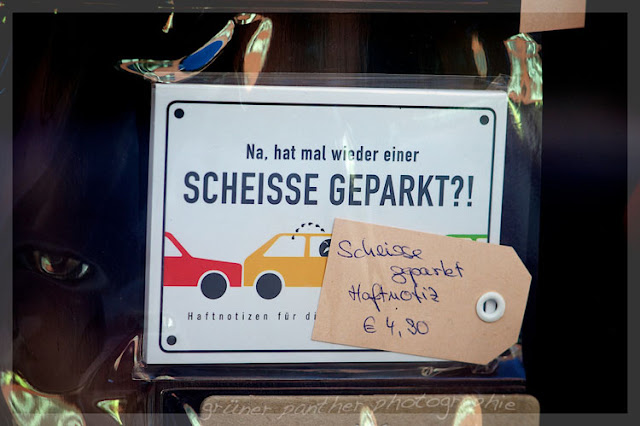 Na, hat mal wieder einer
SCHEISSE GEPARKT?!
Scheisse
geparkt
Haftnotiz
€ 4,90
Haftnotizen für di
grüner panther photographie